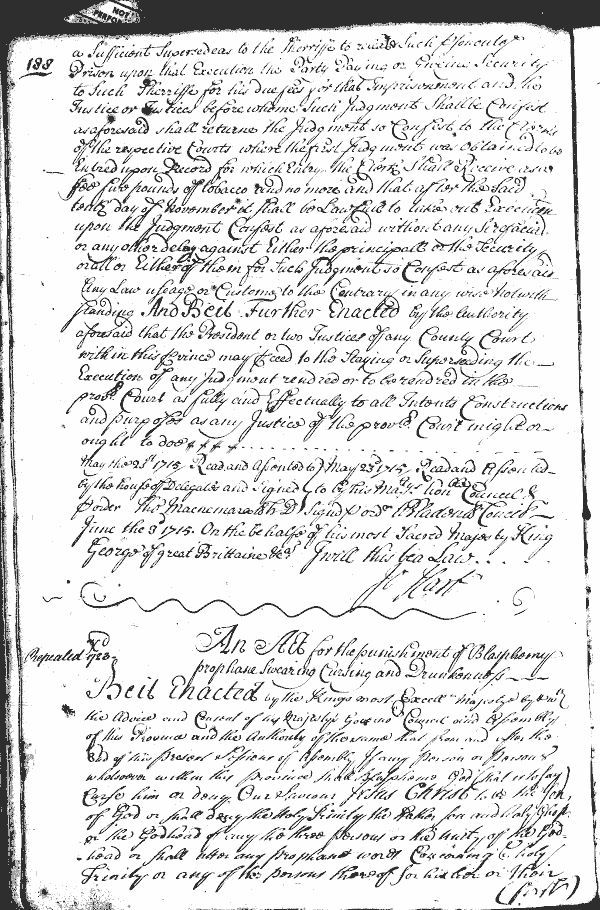 188
a Sufficient Supersedeas to the Sherriffe to Such
Prison upon that Execution the Party Paying or Giveing Security
to Such Sherriffe for his due fees for that Imprisonment and the
Justice or Justices before whome Such Judgment Shall be Confest
as aforesaid shall returne the Judgment so Confest to the Clerks
of the respective Courts where the first Judgment was obtained to be
Entred upon Record for which Entry the Clerk Shall Receive as a
fee five pounds of tobacco and no more and that after the Said
tenth day of November it shall be Lawfull to take out Execution
upon the Judgment Confest as aforesaid without any
or any other delay against Either the principall or the Security
or all or Either of them for Such Judgment so Confest as aforesaid
Any Law usage or Custome to the Contrary in any wise notwith
standing And Beit Further Enacted by the authority
aforesaid that the President or two Justices of any County Court
within this Province may proceed to the Staying or Superseeding the
Execution of any Judgment rendred or to be rendred in the
prov.ll Court as fully and Effectually to all Intents Constructions
and purposes as any Justice of the prov.ll Court might or
ought to doe
May the 23d 1715. Read and Assented to May 23d 1715. Read and Assented
by the house of Delegates and Signed to by his Majtys hon.ble Council &
p order Tho: Macnemara Cl. D. Sign'd p ord.r WBladen Cl Councel
June the 3d 1715. On the behalfe of his most Sacred Majesty King
George of Great Brittaine &ca I will this be a Law
Jo Hart
Repealed 1723
An Act for the punishment of Blasphemy
prophane Swearing Cursing and Drunkenness
Beit Enacted by the Kings most Excell.t Majesty by & wth
the Advice and Consent of his Majestys Govern.r Councel and Assembly
of this Province and the Authority of the same that from and after the
End of this Present Session of Assembly If any Person or Persons
whatsoever within this province shall Blaspheme God that is to Say
Curse him or deny Our Saviour Jesus Christ to be the Son
of God or shall deny the Holy Trinity the Father Son and Holy Ghost
or the Godhead of any the three persons or the unity of the God
head or shall utter any Prophane words Concerning the holy
Trinity or any of the persons thereof for his her or Their
(first)